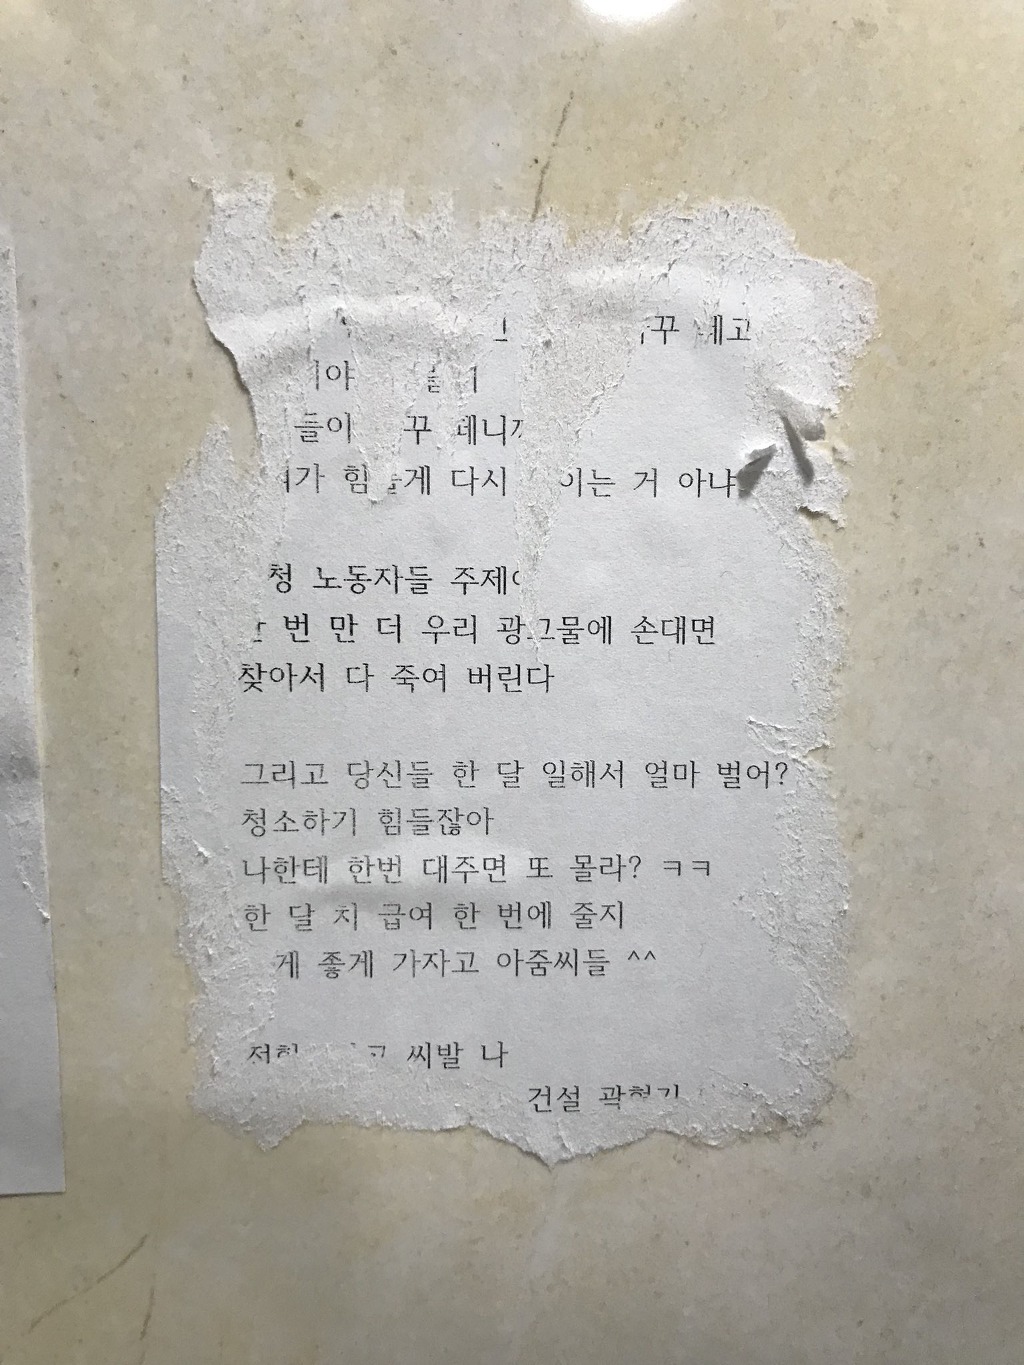 떼고
들이 꾸 떼니까
힘들게 다시 거 아냐
청 노동자들 주제에
한 번 만 더 우리 광고물에 손대면
찾아서 다 죽여 버린다
그리고 당신들 한 달 일해서 얼마 벌어?
청소하기 힘들잖아
나한테 한번 대주면 또 몰라? ㅋㅋ
한 달 치 급여 한 번에 줄지
게 좋게 가자고 아줌씨들 ^^
씨발 나
건설